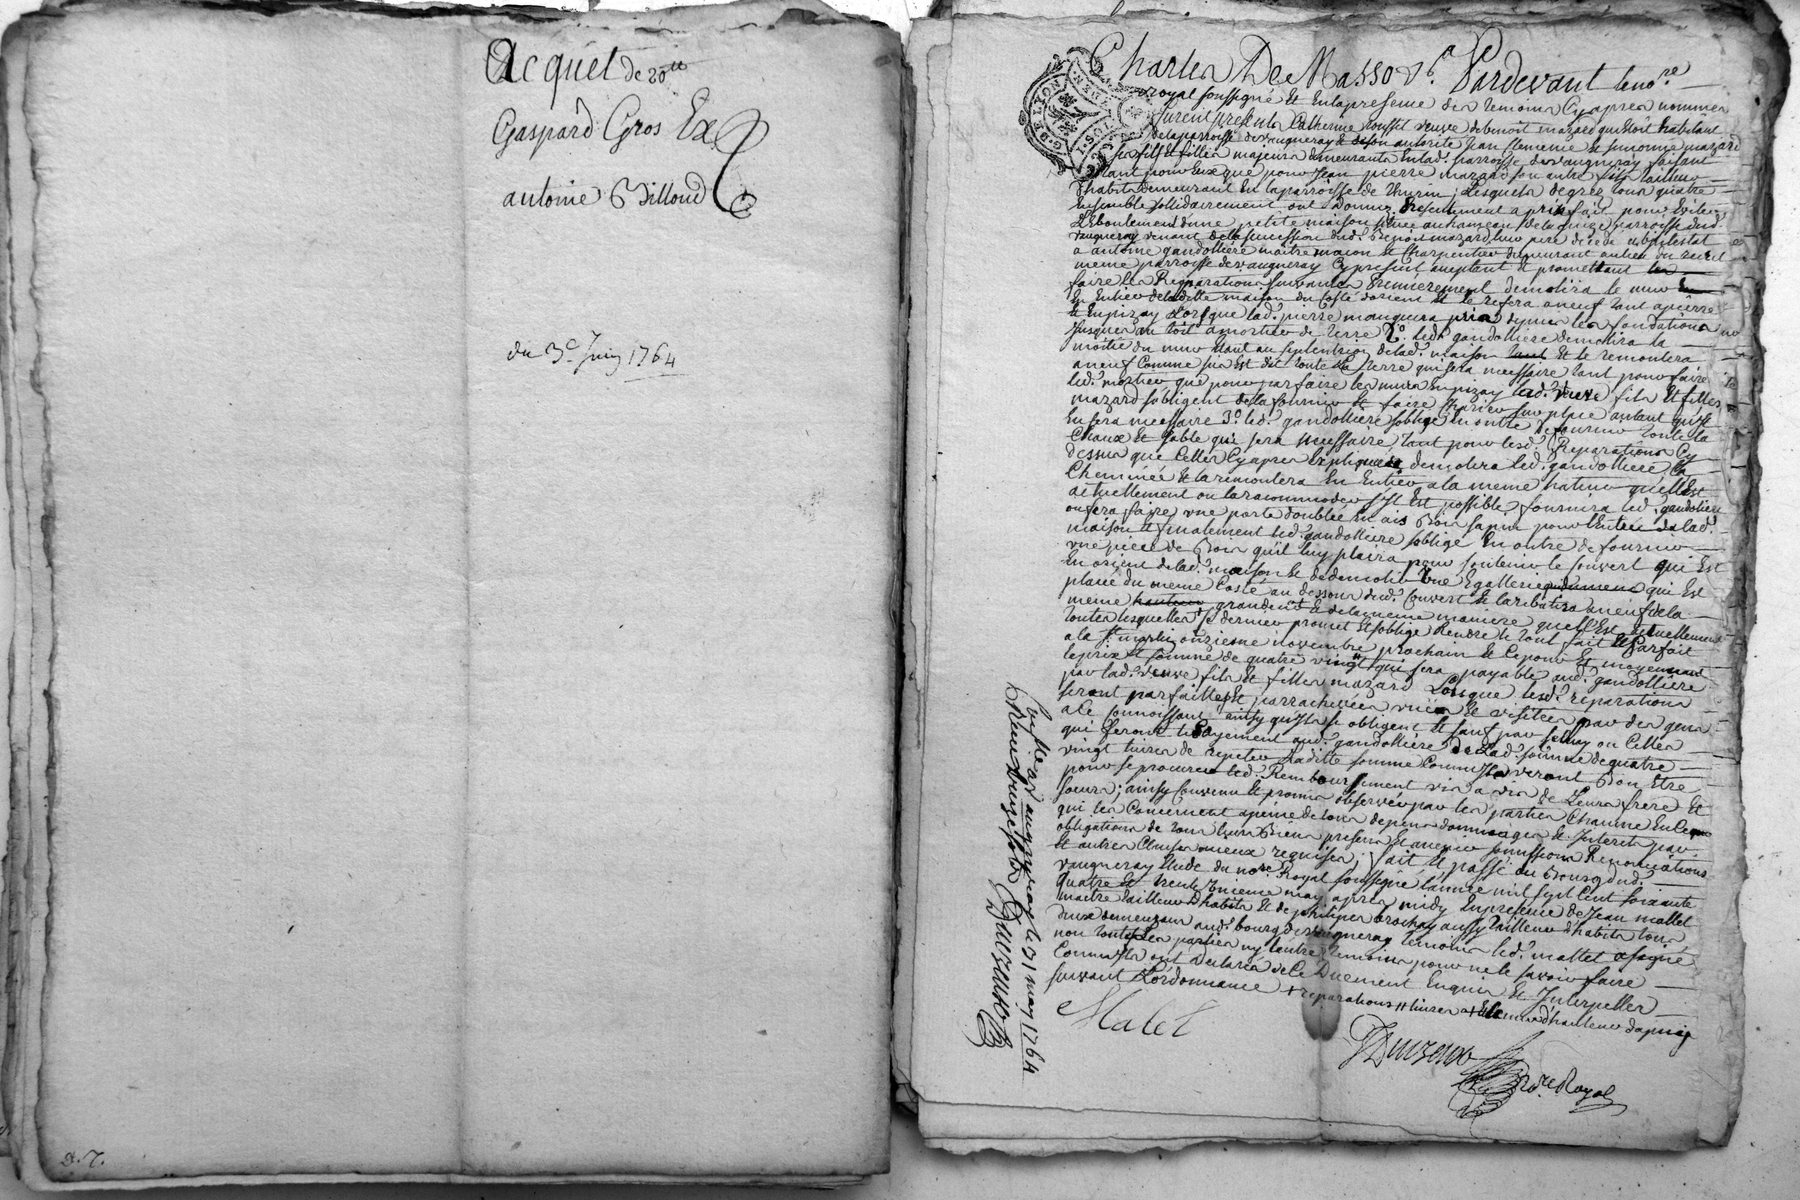 Acquêt de 20ᵗᵗ
Gaspard Gros Ex
antoine Billoud
du 3ᵉ Juin 1764
Charles De Masso Pardevant le no.re
royal soussigné Et En la presence des temoins Cy apres nommes
furent presents Catherine veuve de benoit mazard qui Etoit habitant
de la parroisse de vaugneray Et de son autorite Jean Clemence Et simonne mazard
ses fils Et filles majeurs demeurants En lad. parroisse de vaugneray faisant
tant pour Eux que pour Jean pierre mazard son autre fils tailleur
d'habits demeurant En la parroisse de thurin, Lesquels de gréz tous quatre
Ensemble sollidairement ont Donnez presentement a prixfait pour Eviter
L'Eboulement d'une petite maison scituée au hameau de la parroisse dud.
vaugneray venant de la succession dud. Benoit mazard leur pere decede abintestat
a antoine gandolliére maitre maçon Et Charpentier demeurant au lieu du recret
meme parroisse de vaugneray Cy present aceptant Et promettant
faire les Reparations suivantes Premierement demolira le mur
En Entier de laditte maison du Costé dorient Et le refera aneuf tant a pierre
Et En pizay Lorsque lad. pierre manquera prix depuis les fondations
Jusques au toit a mortier de terre 2.o led. gandolliere demolira la
moitié du mur Etant au septentrion de lad. maison Et le remontera
aneuf Comme sus Est dit toute la terre qui sera necessaire tant pour faire
led. mortier que pour parfaire les murs En pizay lad. veuve fils Et filles
mazard s'obligent de la fournir Et faire Charier sur place autant quil
En sera necessaire 3.o led. gandolliere s'oblige En outre de fournir toute la
Chaux Et sable qui sera necessaire tant pour lesd. Reparations Cy
dessus que Celles Cy apres Expliquées, demolira led. gandolliere la
Cheminée Et la remontera En Entier a la meme hauteur qu'elle Est
actuellement ou la racommoder s'il Est possible, fournira led. gandolliere
ou fera faire une porte doublée En ais Bois sapin pour l'Entrée de lad.
maison Et finalement led. gandolliere s'oblige En outre de fournir
une piece de Bois qu'il luy plaira pour soutenir le Couvert qui Est
En orient de lad. maison Et de demolir une Egallerie qui Est
placé du meme Costé au dessous dud. Couvert Et la rebatira aneuf de la
meme grandeur Et de la meme maniere quelle Est actuellement
toutes lesquelles Ce dernier promet Et s'oblige Rendre le tout fait Et Parfait
a la St. martin onzieme novembre prochain Et Ce pour Et moyennant
le prix Et somme de quatre vingt qui sera payable aud. gandolliere
par lad. veuve fils Et filles mazard Lorsque lesd. reparations
seront parfaittes Et parrachevées vües Et visitées par des gens
a Ce Connoissant ainsy qu'ils si obligent Et sauf par Celuy ou Celles
qui feront le payement aud. gandolliére de lad. somme de quatre
vingt livres de repeter laditte somme Comm'ils verront Bon Etre
pour se procurer led. Remboursement vis a vis de Leurs frere Et
soeurs; ainsy Convenu Et promis observer par les parties Chacune En Ce
qui les Concernent a peine de tous depens dommages Et Interets par
obligations de tous leurs Biens presents Et avenir soumissions Renonciations
Et autres Clauses mieux requises, fait Et passé au Bourg dud.
vaugneray Etude du no.re Royal soussigné l'année mil sept Cent soixante
quatre Et trente unieme may apres midy En presence de Jean mallet
maitre tailleur d'habits Et de philipes brochay aussy tailleur d'habits tous
deux demeurans aud. bourg de vaugneray temoins led. mallet a signé
non toutes Les parties ny l'autre temoin pour ne le savoir faire
Comm'ils ont declaré de Ce Duement Enquis Et Interpellés
suivant L'ordonnance + reparations # livres
Malet
Duvzeuvo
No.re Royal
a vaugneray le 31 may 1764